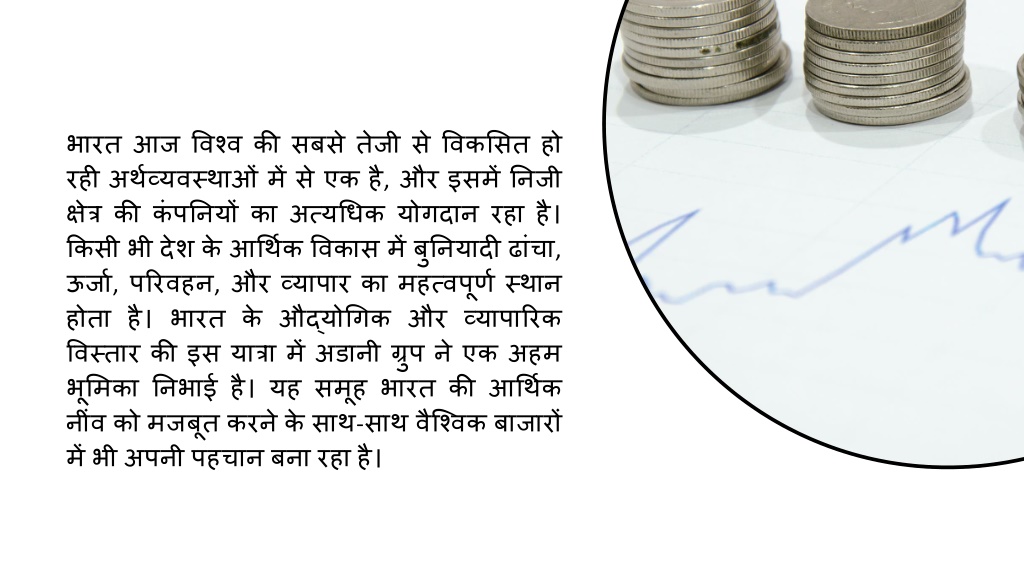 भारत आज विश्व की सबसे तेजी से विकसित हो
रही अर्थव्यवस्थाओं में से एक है, और इसमें निजी
क्षेत्र की कंपनियों का अत्यधिक योगदान रहा है।
किसी भी देश के आर्थिक विकास में बुनियादी ढांचा,
ऊर्जा, परिवहन, और व्यापार का महत्वपूर्ण स्थान
होता है। भारत के औद्योगिक और व्यापारिक
विस्तार की इस यात्रा में अडानी ग्रुप ने एक अहम
भूमिका निभाई है। यह समूह भारत की आर्थिक
नींव को मजबूत करने के साथ-साथ वैश्विक बाजारों
में भी अपनी पहचान बना रहा है।